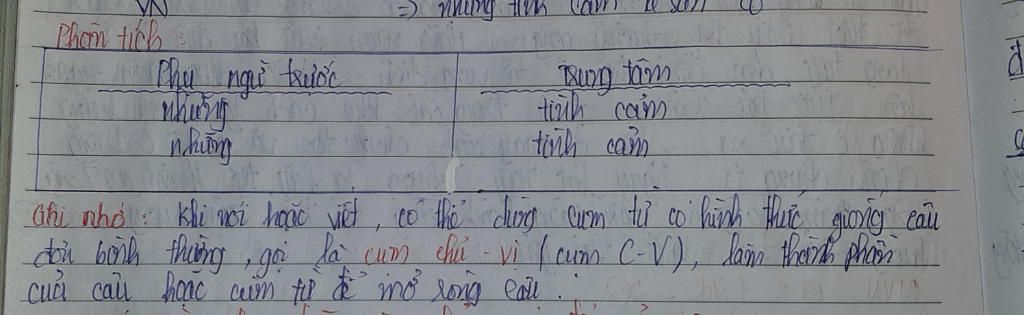 VN => những tình cảm ta sẵn có
Phân tích :
Phụ ngữ trước Trung tâm
những tình cảm
những tình cảm
Ghi nhớ : Khi nói hoặc viết, có thể dùng cụm từ có hình thức giống câu
đơn bình thường, gọi là cụm chủ - vị (cụm C-V), làm thành phần
của câu hoặc cụm từ để mở rộng câu.